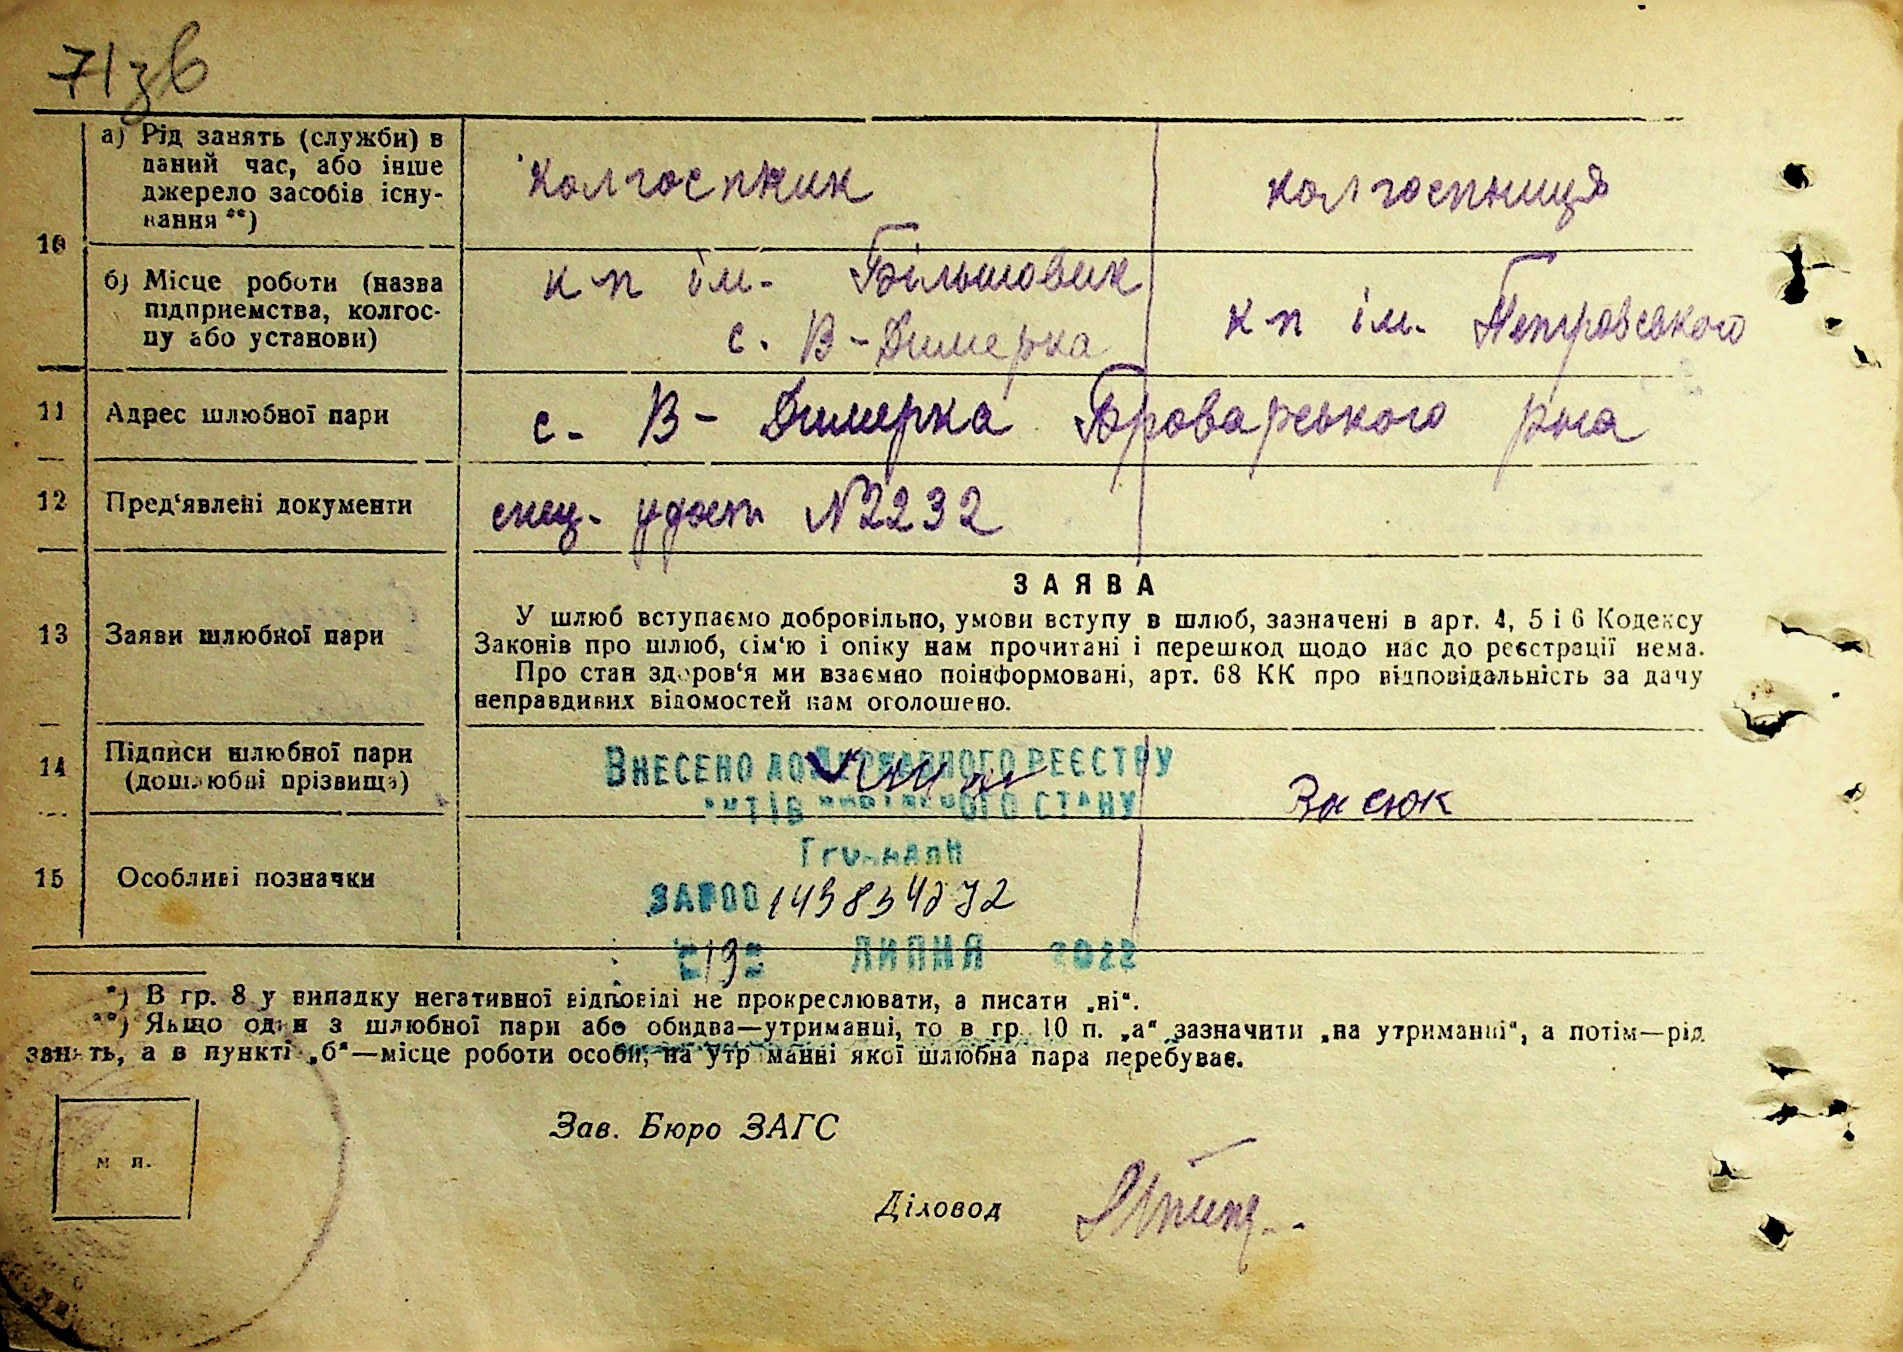 71зв
10
а) Рід занять (служби) в
даний час, або інше
джерело засобів існу-
вання **)
колгоспник
колгоспниця
б) Місце роботи (назва
підприємства, колгос-
пу або установи)
к-п ім. Більшовик
с. В-Димерка
к-п ім. Петровського
11 Адрес шлюбної пари
с. В- Димерка Броварського р-на
12 Пред'явлені документи
спец. удост №2232
ЗАЯВА
13 Заяви шлюбної пари
У шлюб вступаємо добровільно, умови вступу в шлюб, зазначені в арт. 4, 5 і 6 Кодексу
Законів про шлюб, сім'ю і опіку нам прочитані і перешкод щодо нас до реєстрації нема.
Про стан здоров'я ми взаємно поінформовані, арт. 68 КК про відповідальність за дачу
неправдивих відомостей нам оголошено.
14 Підписи шлюбної пари
(дошлюбні прізвища)
ВНЕСЕНО ДО ДЕРЖАВНОГО РЕЄСТРУ
АКТІВ ЦИВІЛЬНОГО СТАНУ
ГРОМАДЯН
15 Особливі позначки
ЛИПНЯ 2022
*) В гр. 8 у випадку негативної відповіді не прокреслювати, а писати „ні“.
**) Якщо один з шлюбної пари або обидва—утриманці, то в гр. 10 п. „а“ зазначити „на утриманні“, а потім—рід
занять, а в пункті „б“—місце роботи особи, на утриманні якої шлюбна пара перебуває.
Зав. Бюро ЗАГС
м п.
Діловод